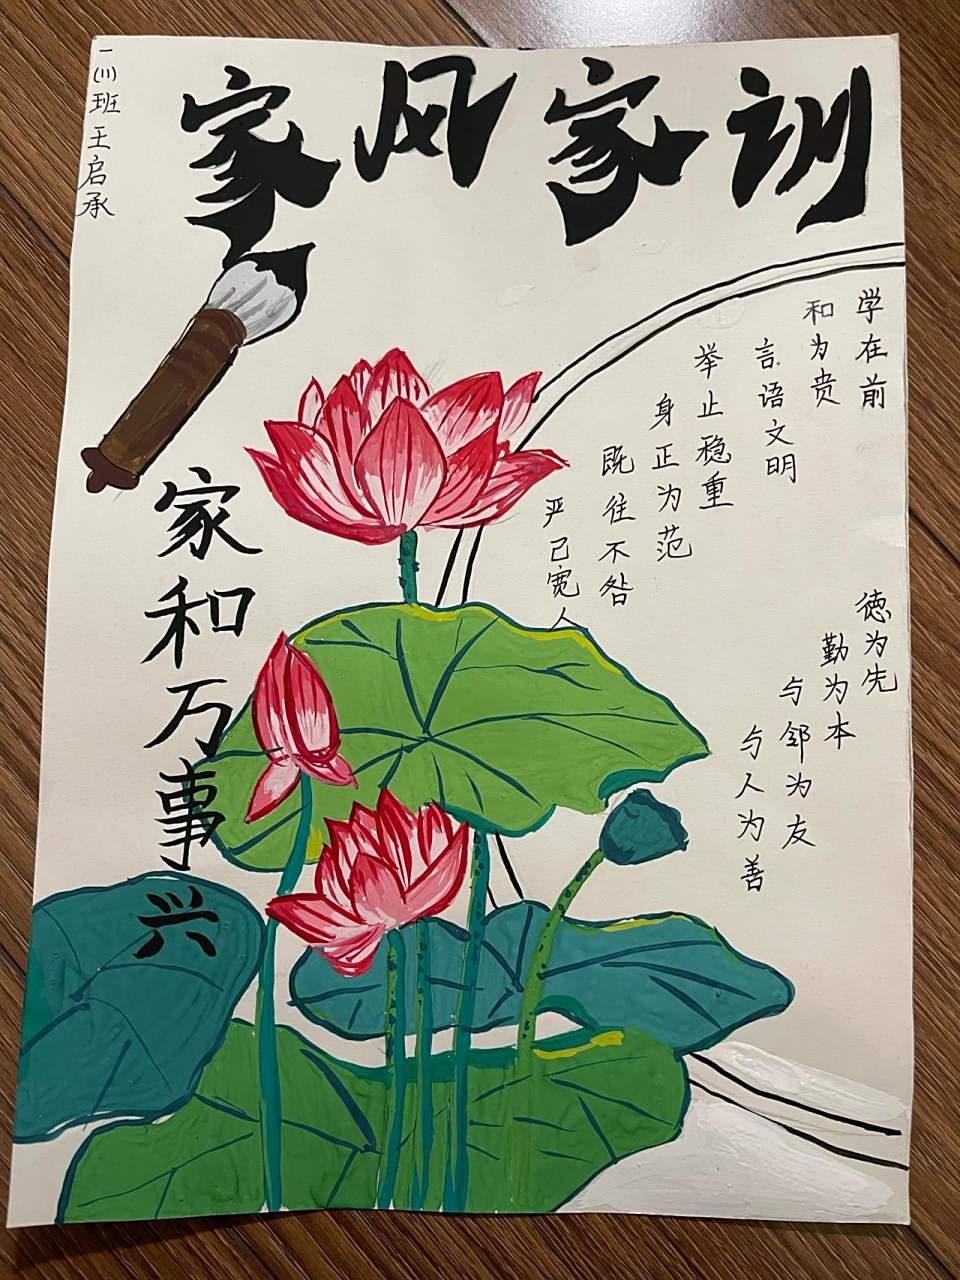 家风家训
一(11)班王启承
家和万事兴
学在前
和为贵
言语文明
举止稳重
身正为范
既往不咎
严己宽人
德为先
勤为本
与邻为友
与人为善